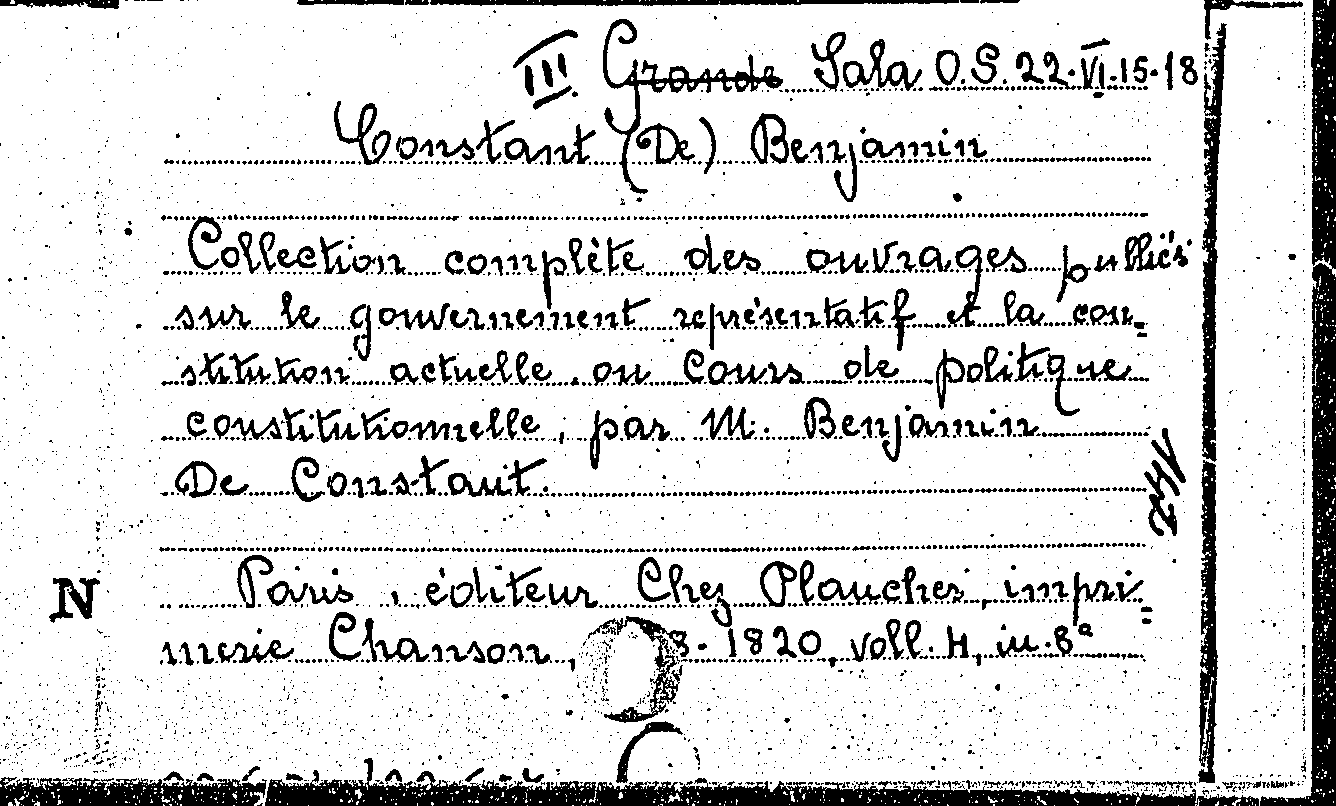 III Grande Sala O.S. 22.VI.15-18
Constant (De) Benjamin
Collection complète des ouvrages publiés
sur le gouvernement représentatif et la con=
stitution actuelle ou Cours de politique
constitutionnelle, par M. Benjamin
De Constant.
142
N
Paris, éditeur Chez Plancher, impri=
merie Chanson, 8-1820, voll. 4, in-8°